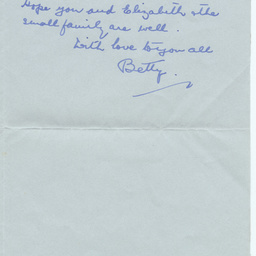 Hope you and Elizabeth & the
small family are well.
With love to you all
Betty.